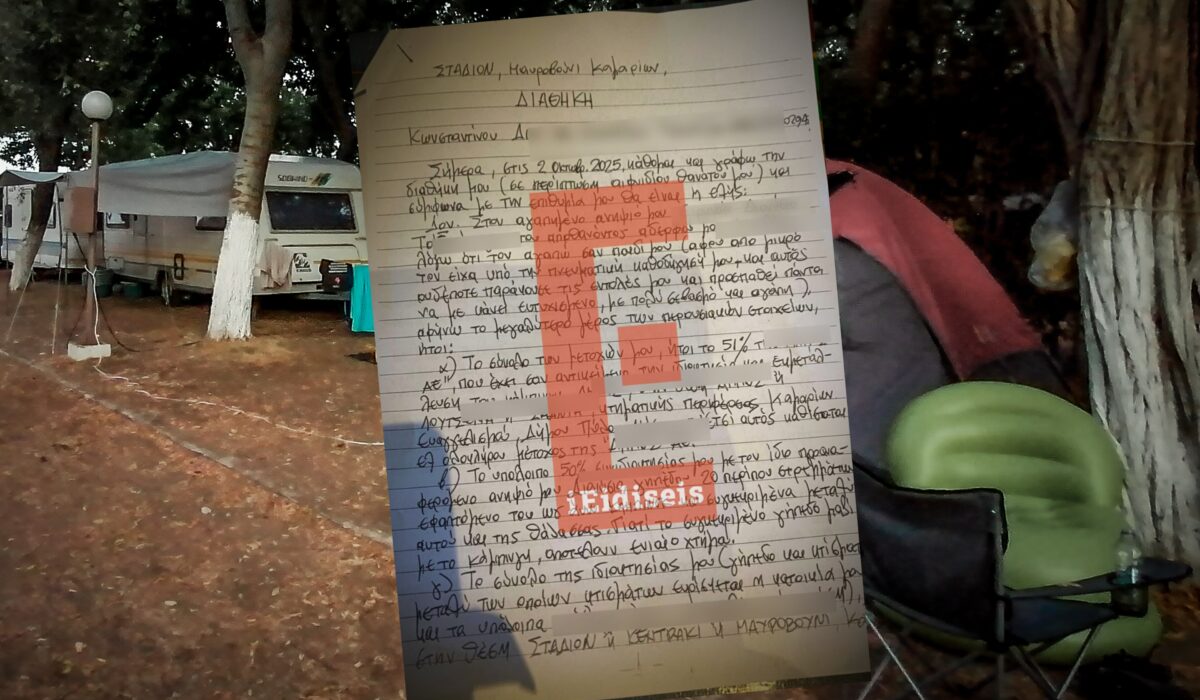 ΣΤΑΔΙΟΝ, Μαυροβούνι Καμαρίων,
ΔΙΑΘΗΚΗ
Κωνσταντίνου Δι
0294
Σήμερα, στις 2 Οκτωβ. 2025, κάθομαι και γράφω την
διαθήκη μου (σε περίπτωση αιφνιδίου θανάτου μου) και
σύμφωνα με την επιθυμία μου θα είναι η εξής:
1ον. Στον αγαπημένο ανιψιό μου
του αποθανόντος αδερφού μο
λόγω ότι τον αγαπώ σαν παιδί μου (αφού από μικρό
τον είχα υπό την πνευματική καθοδήγησή μου, και αυτός
ουδέποτε παράκουσε τις εντολές μου και προσπαθεί πάντοτε
να με κάνει ευτυχισμένο, με πολύ σεβασμό και αγάπη),
αφήνω το μεγαλύτερο μέρος των περουσιακών στοιχείων,
ήτοι:
α) Το σύνολο των μετοχών μου, ήτοι το 51% τ
ΑΕ" που έχει σαν αντικείμενο την ιδιοκτησία και Εκμετάλ-
λευση του
κτηματικής περιφέρειας Καμαρίων
Ευαγγελισμού, Δήμου
έτσι αυτός καθίσταται
εξ ολοκλήρου μέτοχος της
β) Το υπόλοιπο 50% συνιδιοκτησίας μου με τον ίδιο προανα-
φερόμενο ανιψιό μου 20 περίπου στρεμμάτων
εφαπτόμενο του
iEidiseis
συγκεκριμένα μεταξύ
αυτού και της θάλασσας. Γιατί το συγκεκριμένο γήπεδο μαζί
με το κάμπινγκ, αποτελούν ενιαίο κτήμα.
γ) Το σύνολο της ιδιοκτησίας μου (γήπεδο και κτίσματ
μεταξύ των οποίων κτισμάτων ευρίσκεται η κατοικία μο
και τα υπόλοιπα
στην θέση ΣΤΑΔΙΟΝ ή ΚΕΝΤΡΑΚΙ ή ΜΑΥΡΟΒΟΥΝΙ, Κα